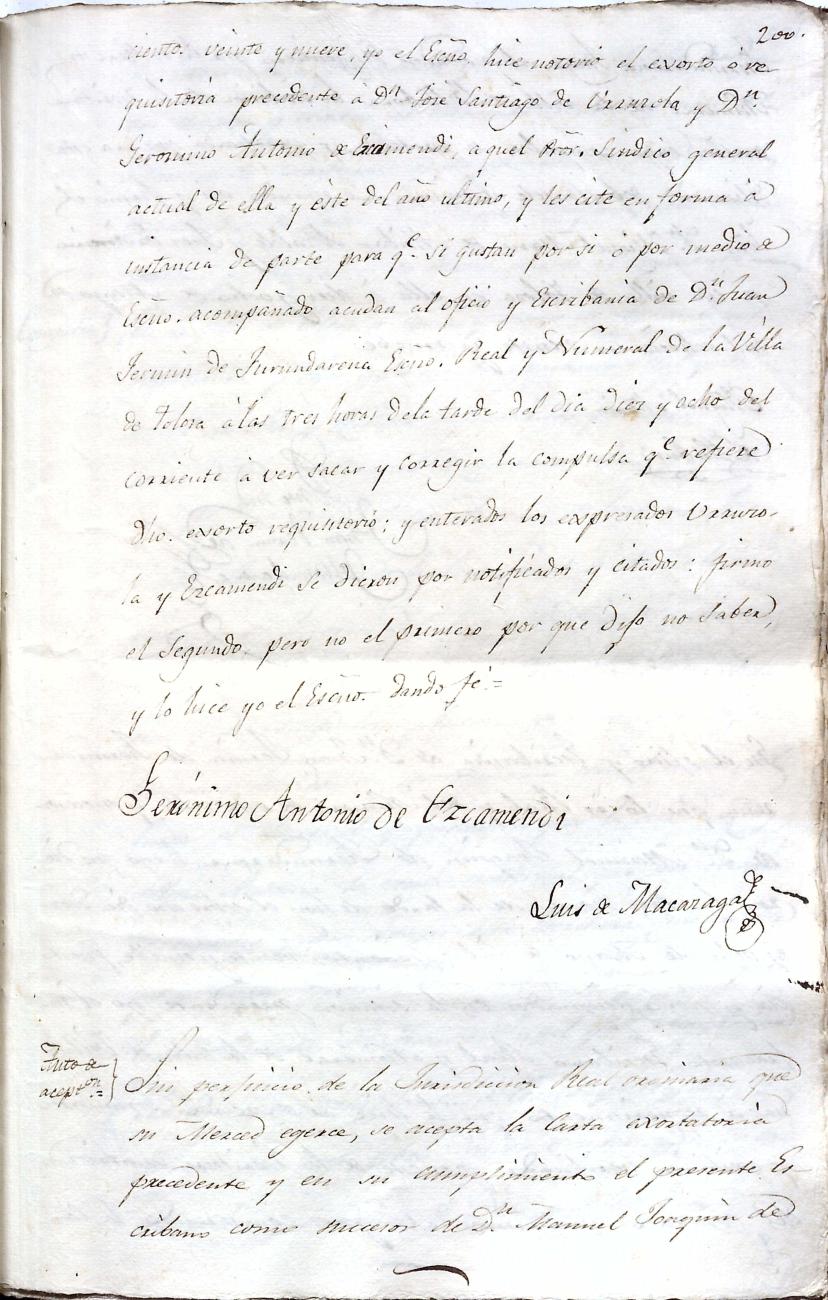 200.
ciento veinte y nueve, yo el Esc̃no. hice notorio el exorto ó re-
quisitoria precedente á Dⁿ. José Santiago de Urruzola y Dⁿ.
Geronimo Antonio de Ezcamendi, aquel Prõr. Sindico general
actual de ella y éste del año ultimo, y les cite en forma á
instancia de parte para qᵉ. si gustan por si ó por medio de
Esc̃no. acompañado acudan al oficio y Escribania de Dⁿ. Juan
Fermin de Furundarena Esc̃no. Real y Numeral de la Villa
de Tolosa á las tres horas dela tarde del dia diez y ocho del
corriente á ver sacar y corregir la compulsa qᵉ. refiere
dho. exorto requisitorio; y enterados los expresados Urruzo-
la y Ezcamendi se dieron por notificados y citados: firmo
el Segundo, pero no el primero por que dijo no saber,
y lo hice yo el Esc̃no. dando fé.=
Gerónimo Antonio de Ezcamendi
Luis de Macaraga
Auto de
aceptᵒⁿ.=
Sin perjuicio de la Jurisdiccion Real ordinaria que
su Merced egerce, se acepta la Carta exortatoria
precedente y en su cumplimiento el presente Es-
cribano como sucesor de Dⁿ. Manuel Joaquin de